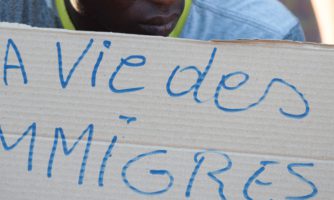 A Vie des
MMIGRES